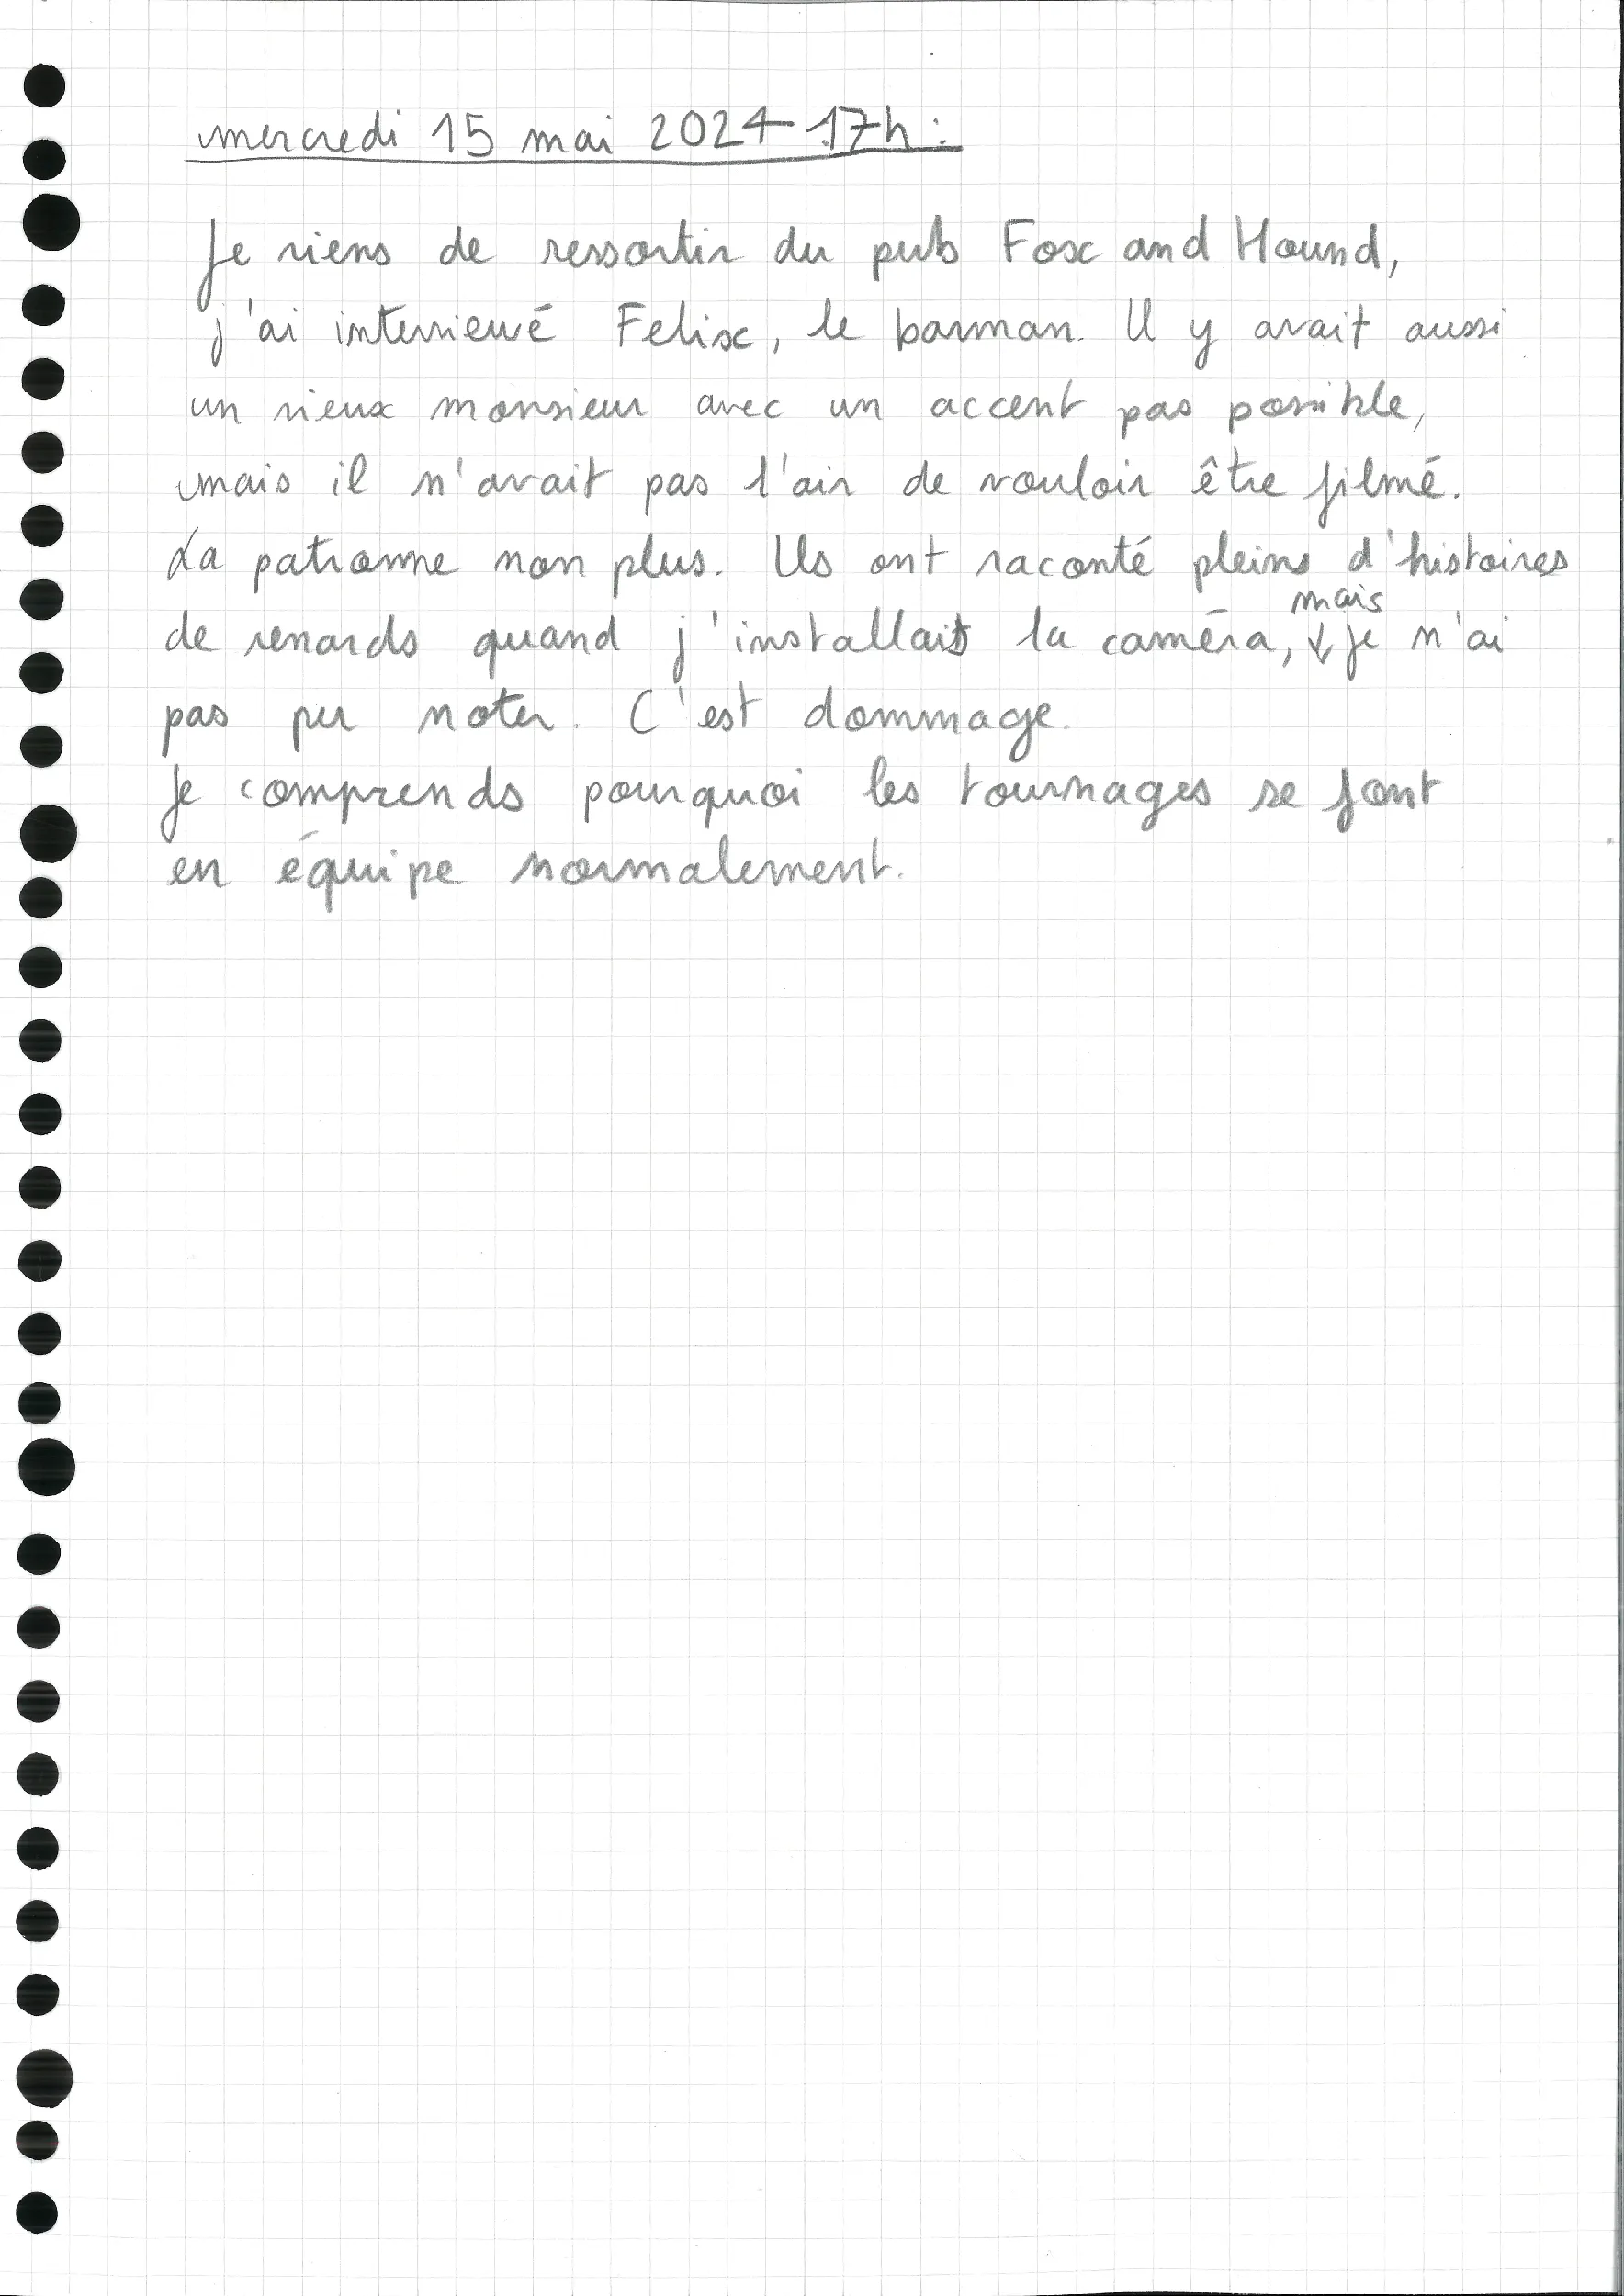 mercredi 15 mai 2024 17h :
Je viens de ressortir du pub Fox and Hound,
j'ai interviewé Felix, le barman. Il y avait aussi
un vieux monsieur avec un accent pas possible,
mais il n'avait pas l'air de vouloir être filmé.
La patronne non plus. Ils ont raconté pleins d'histoires
de renards quand j'installais la caméra, mais je n'ai
pas pu noter. C'est dommage.
Je comprends pourquoi les tournages se font
en équipe normalement.